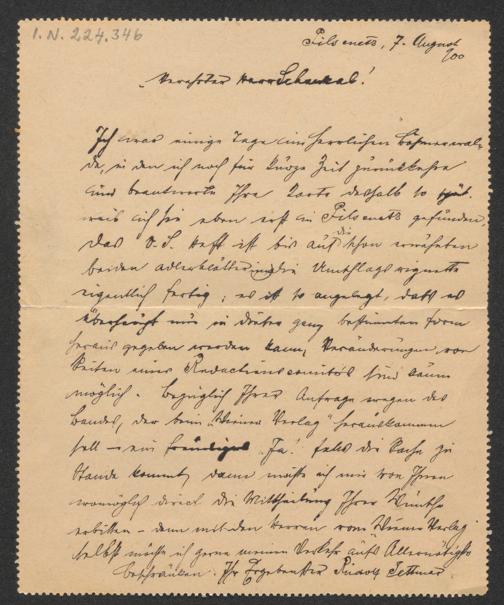 I.N. 224.346
Pilsenetz, 7. August
900
Verehrter Herr Schaukal!
Ich war einige Tage im herrlichen Böhmerwal-
de, in den ich noch für kurze Zeit zurückkehre
und beantworte Ihre Karte deshalb so spät.
weil ich sie eben erst in Pilsenetz gefunden,
das V.S. Heft ist bis auf die schon erwähnten
beiden Adlerblätter und die Umschlagsvignette
eigentlich fertig; es ist so angelegt, dass es
überhaupt nur in dieser ganz bestimmten Form
heraus gegeben werden kann, Veränderungen von
Seiten eines Redactionscomités sind kaum
möglich. Bezüglich Ihrer Anfrage wegen des
Bandes, der beim „Wiener Verlag" herauskommen
soll – ein freudiges „Ja"! falls die Sache zu
Stande kommt, dann müsste ich mir von Ihnen
womöglich direct die Mittheilung Ihrer Wünsche
erbitten – denn mit den Herren vom Wiener Verlag
selbst möchte ich gerne meinen Verkehr aufs Allernötigste
beschränken. Ihr Ergebenster Rudolf Jettmar